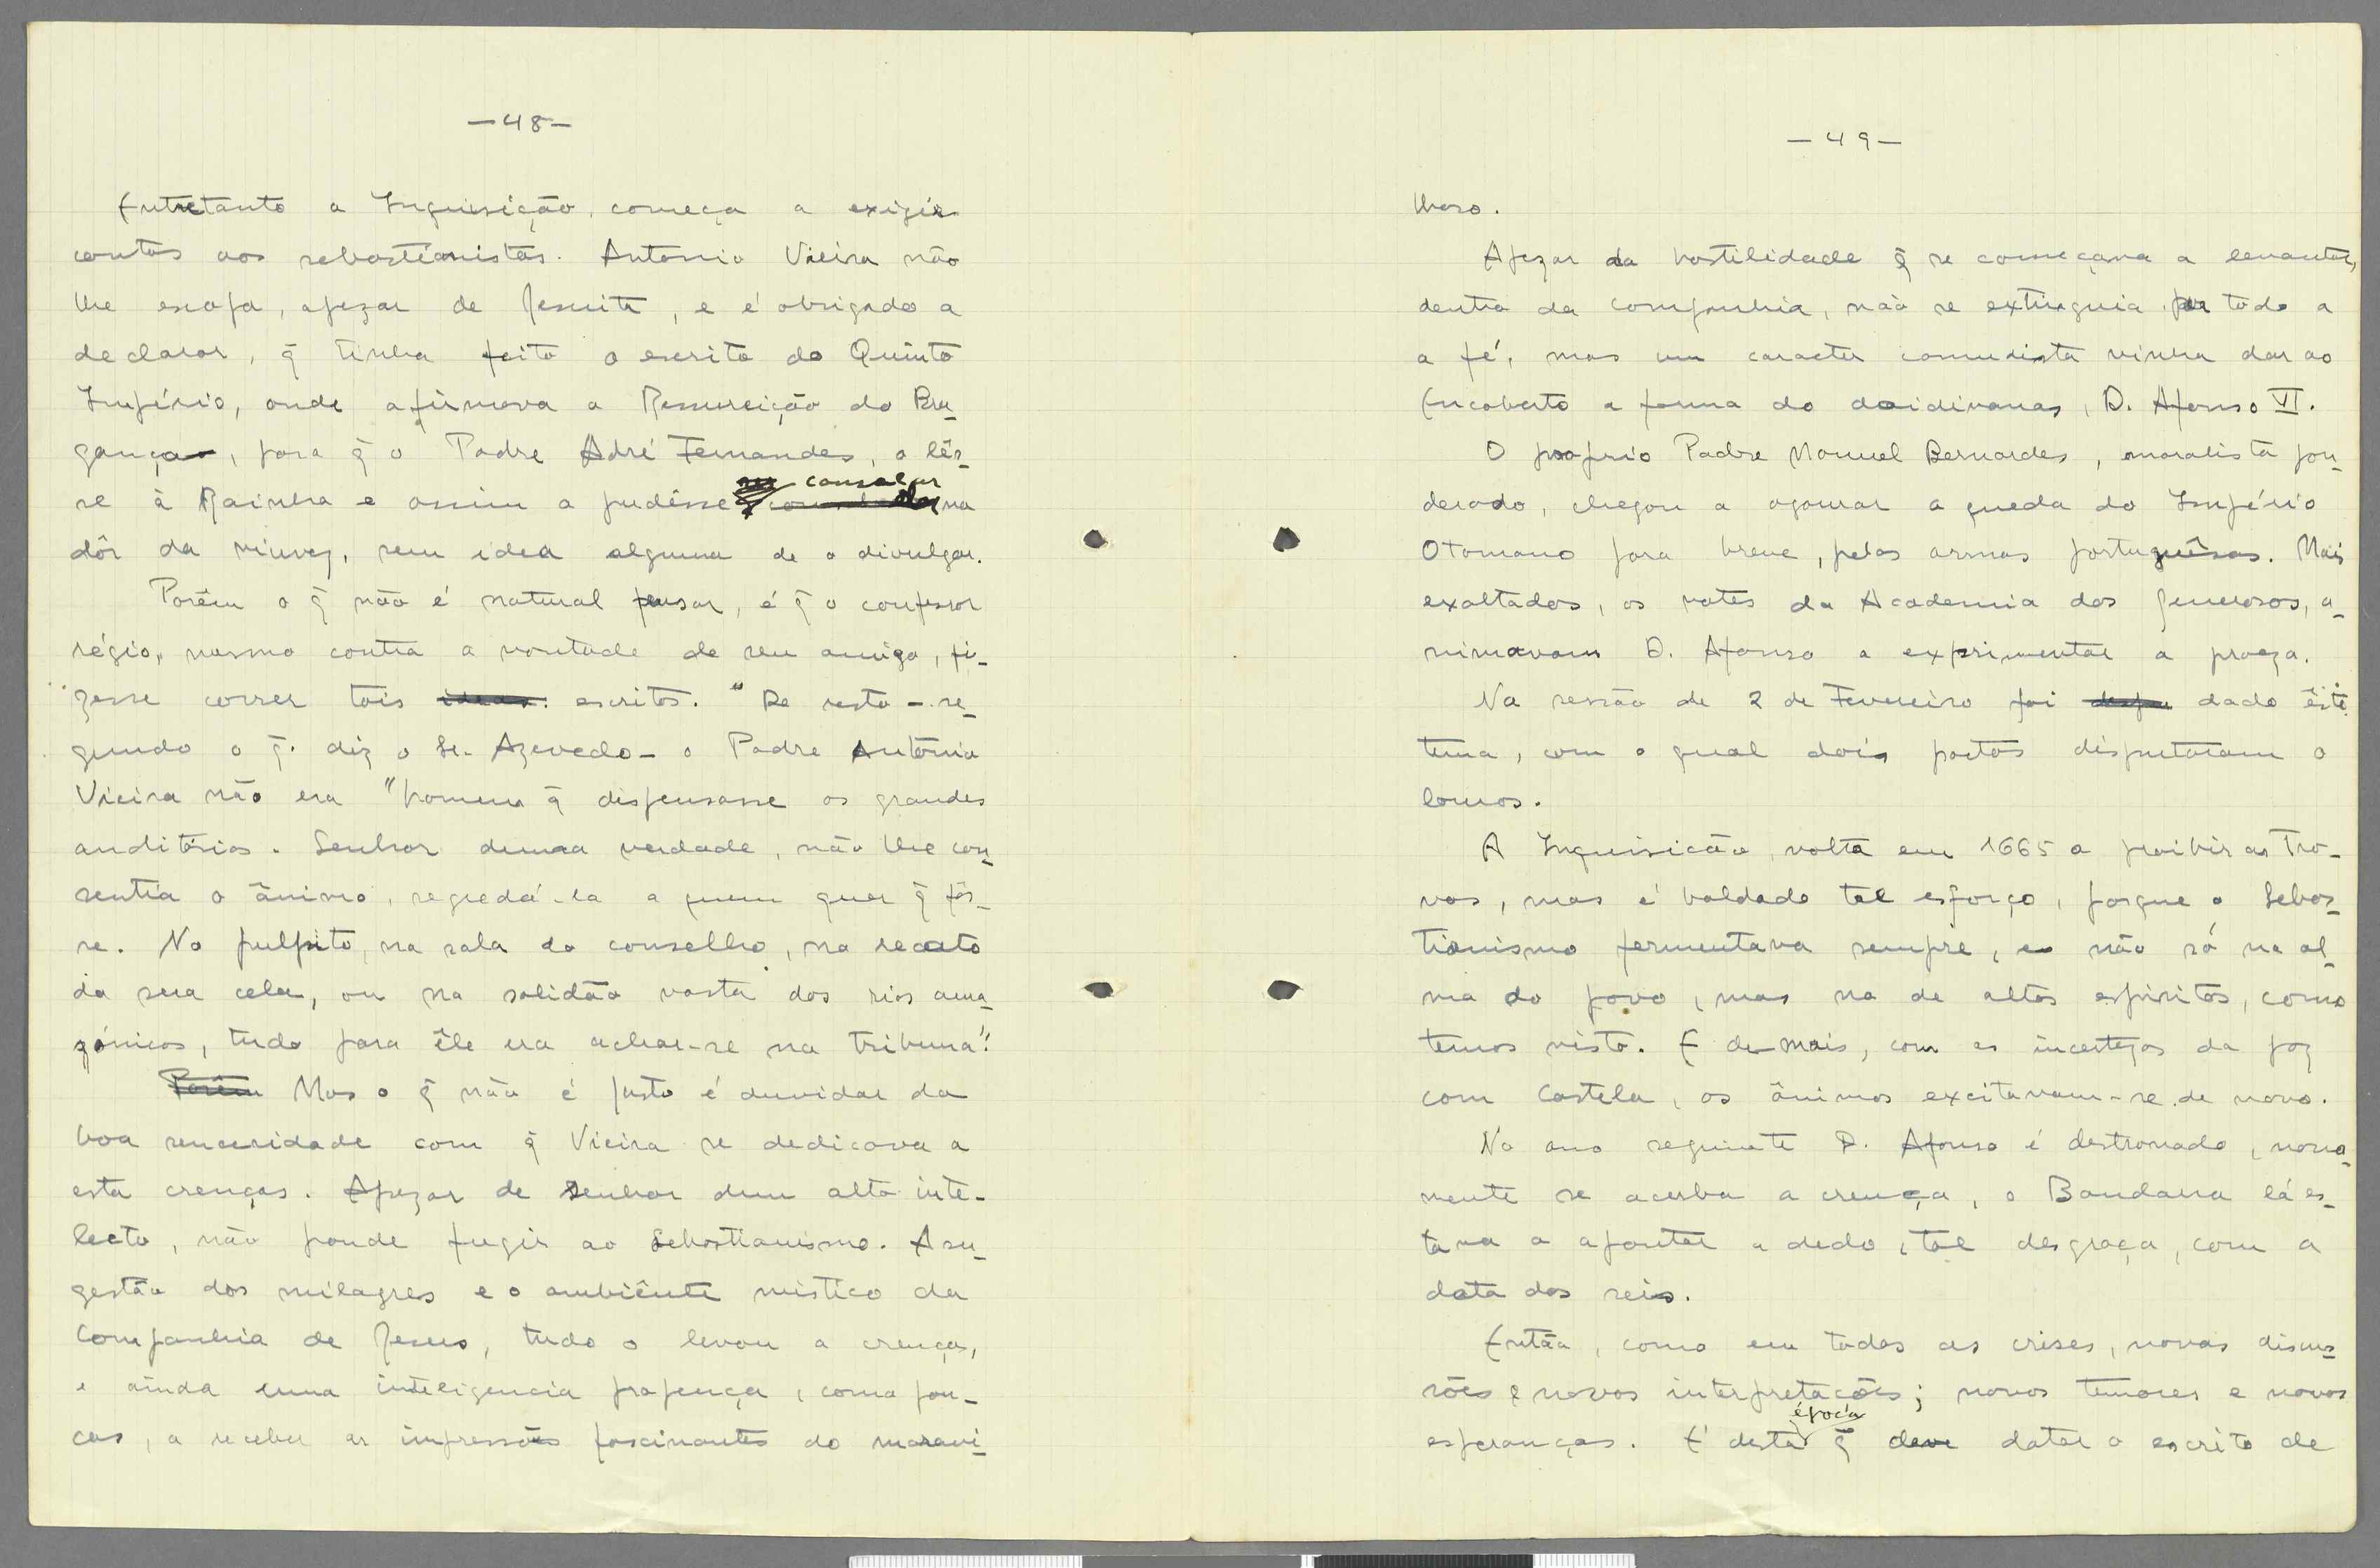 —48—
Entretanto a Inquisição, começa a exigir
contas aos sebastianistas. António Vieira não
lhe escapa, apezar de Jesuita, e é obrigado a
declarar, q̃ tinha feito o escrito do Quinto
Império, onde afirmava a Ressureição do Bra-
gança, para q̃ o Padre Adré Fernandes, o lês-
se à Rainha e assim a pudésse consolar na
dôr da viuvez, sem idea alguma de o divulgar.
Porêm o q̃ não é natural pensar, é q̃ o confessor
régio, mesmo contra a vontade de seu amigo, fi-
zesse correr tais ideas escritos. "De resto - se-
gundo o q̃ diz o Sr. Azevedo - o Padre António
Vieira não era "homem q̃ dispensasse os grandes
auditórios. Senhor duma verdade, não lhe con-
sentia o ânimo, segredá-la a quem quer q̃ fôs-
se. No pulpito, na sala do conselho, no recato
da sua cela, ou na solidão vasta dos rios ama-
zónicos, tudo para êle era achar-se na tribuna".
Porêm Mas o q̃ não é justo é duvidar da
boa senceridade com q̃ Vieira se dedicava a
esta crenças. Apezar de Senhor dum alto inte-
lecto, não poude fugir ao Sebastianismo. A su-
gestão dos milagres e o ambiênte mistico da
Companhia de Jesus, tudo o levou a crença,
e ainda uma inteligencia propença, como pou-
cas, a receber as impressões fascinantes do maravi-
—49—
lhoso.
Apezar da hostilidade q̃ se começava a levantar,
dentro da companhia, não se extinguia por todo a
a fé, mas um caracter comedista vinha dar ao
Encoberto a forma do doidivanas, D. Afonso VI.
O proprio Padre Manuel Bernardes, moralista pon-
derado, chegou a agourar a queda do Império
Otomano para breve, pelas armas portuguêsas. Mais
exaltados, os vates da Academia dos Generosos, a-
nimavam D. Afonso a exprimentar a proeza.
Na sessão de 2 de Fevereiro foi dado êste
tema, com o qual dois poetas disputaram o
louros.
A Inquisicão, volta em 1665 a proibir as Tro-
vas, mas é baldado tal esforço, porque o Sebas-
tianismo fermentava sempre, e não só na al-
ma do povo, mas na de altos espiritos, como
temos visto. E de mais, com as incertezas da paz
com Castela, os ânimos excitavam-se de novo.
No ano seguinte D. Afonso é destronado, nova-
mente se acerba a crença, o Bandarra lá es-
tava a apontar a dedo, tal desgraça, com a
data dos seis.
Então, como em todas as crises, novas discus-
sões e novas interpretacões; novos temores e novas
esperanças. É desta época q̃ deve datar o escrito de